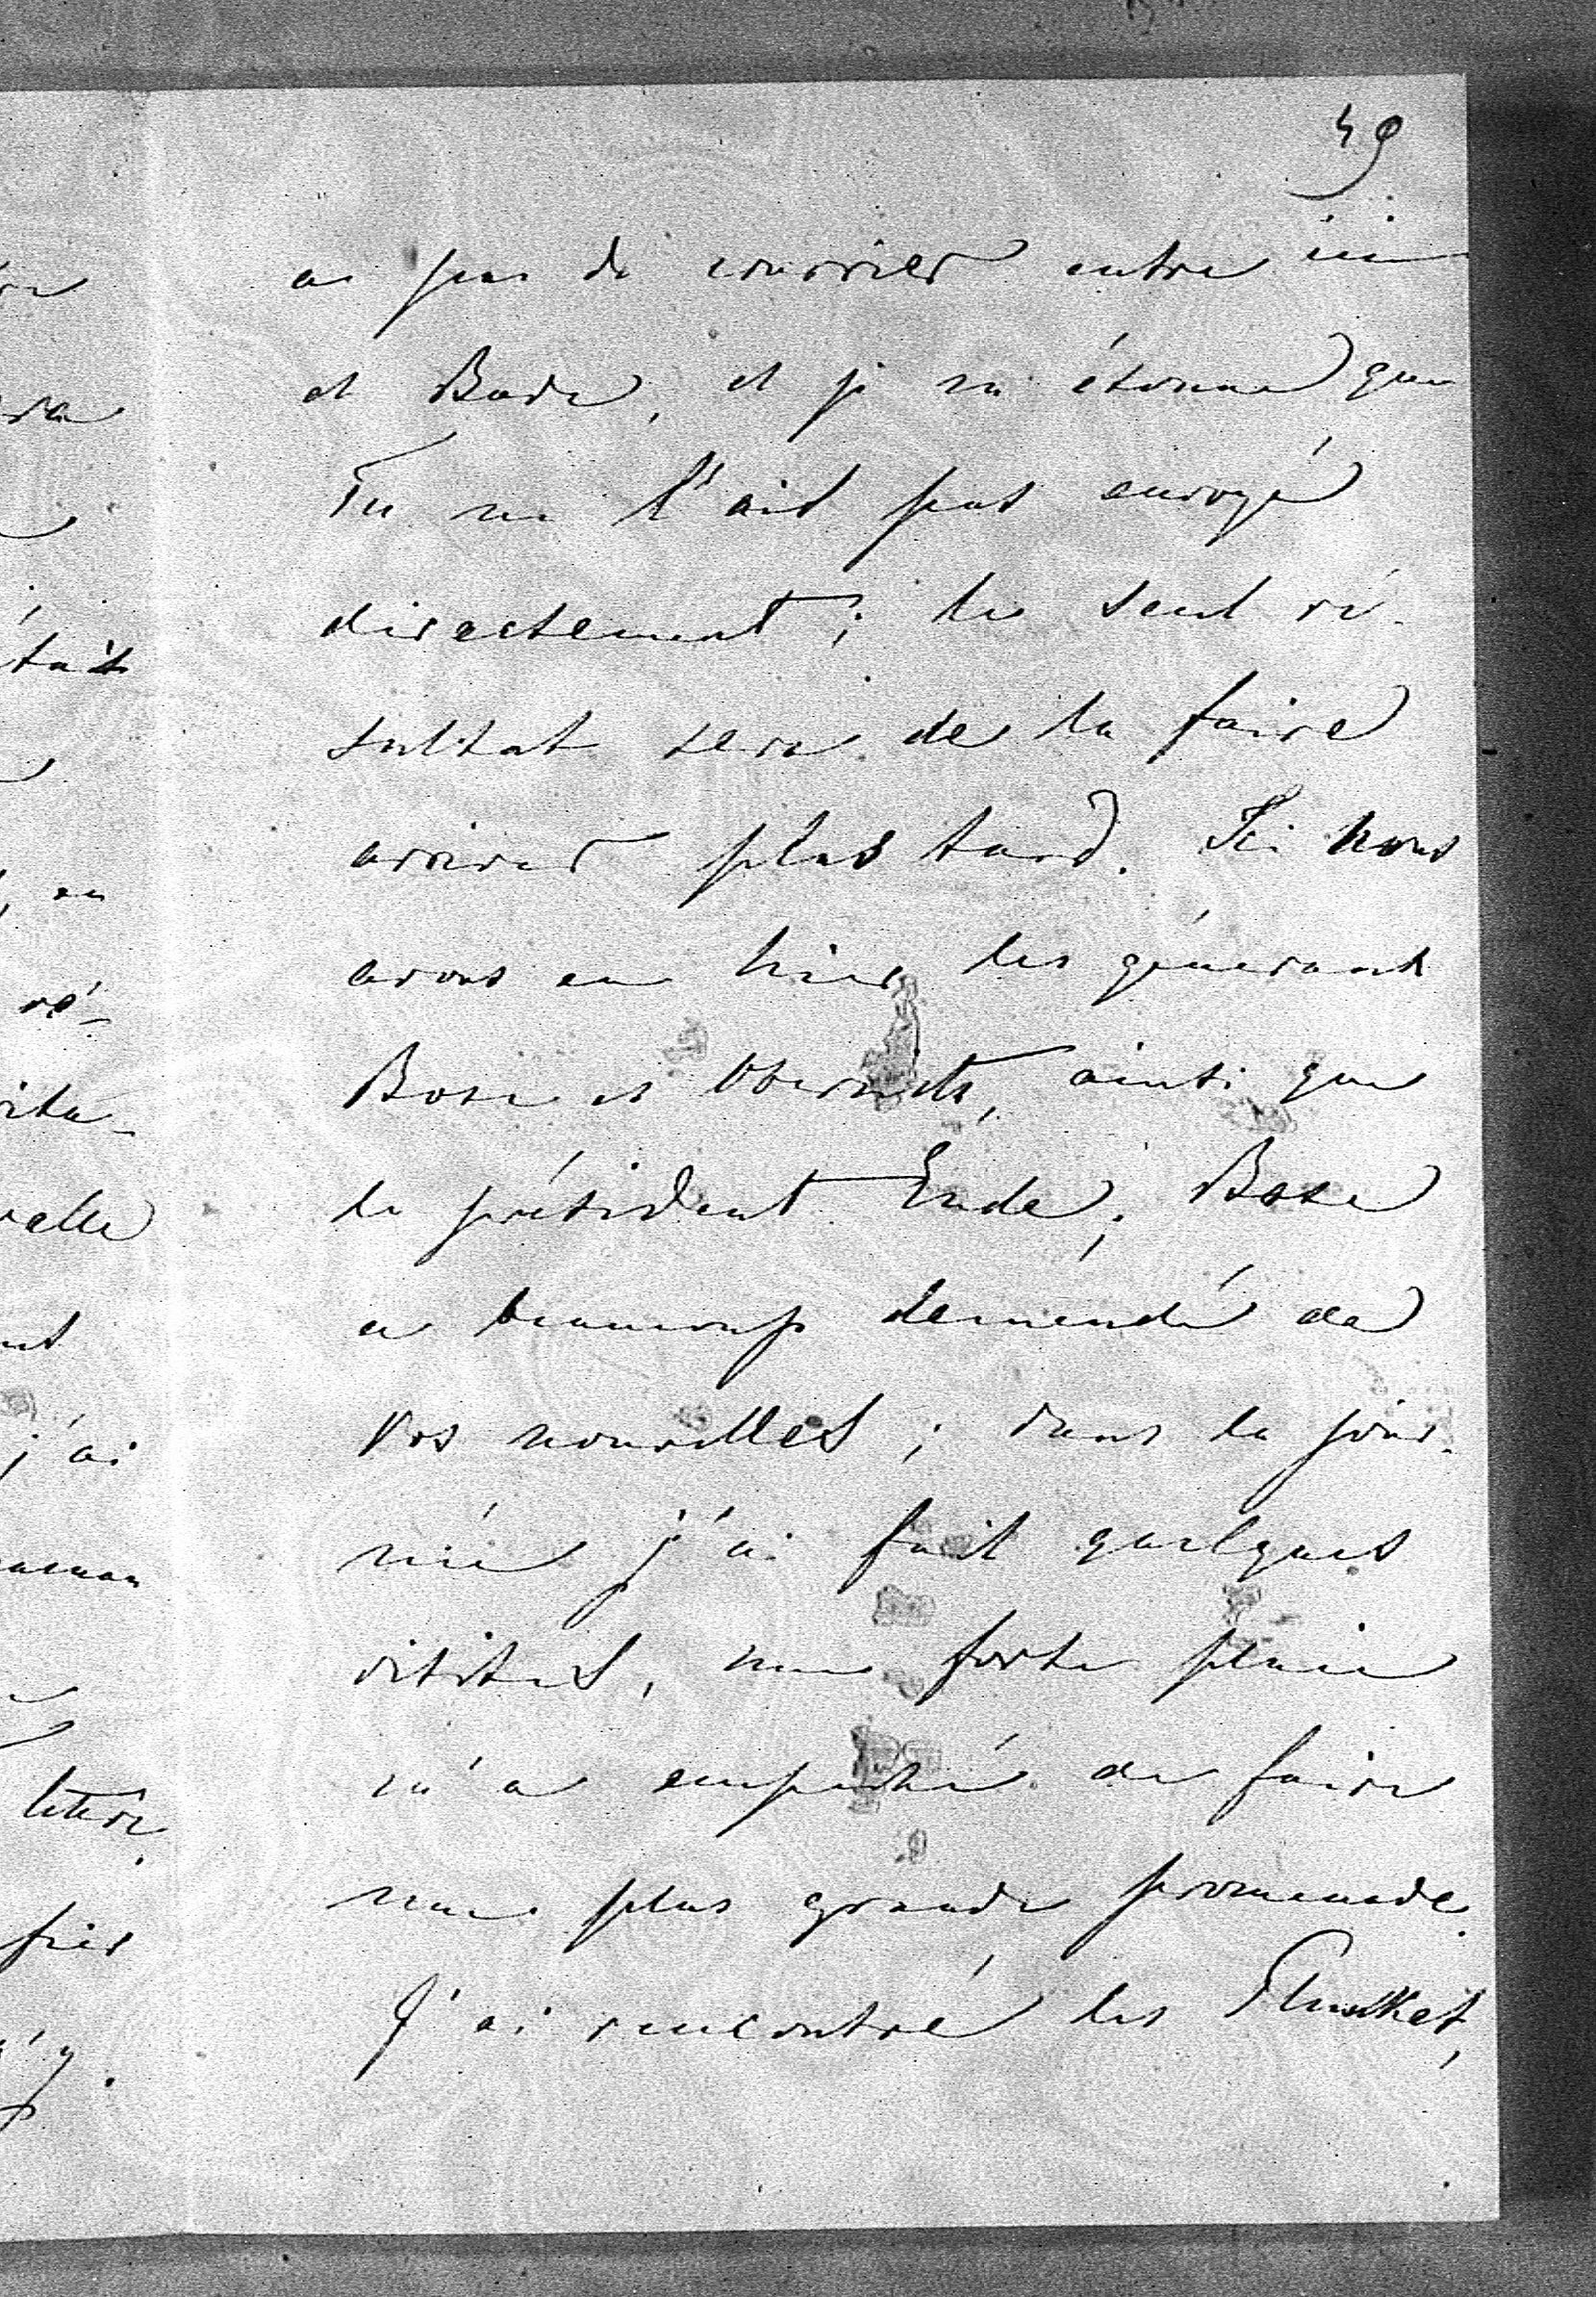 49
a pas de courrier entre ici
et Bade, et je m'étonne que
Tu ne l'ais pas envoyé
directement; le seul ré-
sultat sera de la faire
arriver plus tard. Ici nous
avons eu hier les généraux
Bose et Obernitz, ainsi que
le président Ende; Bose
a beaucoup demandé de
Vos nouvelles; dans la jour-
née j'ai fait quelques
visites, une forte pluie
m'a empêché de faire
une plus grande promenade.
J'ai rencontré les